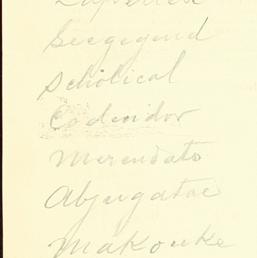 Seegegend
Scholical
Codenidor
Merendato
Abjugatae
Makouke